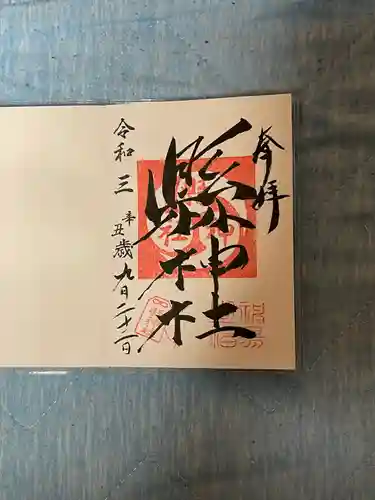 奉拝
縣神社
令和三辛丑歳九月二十二日